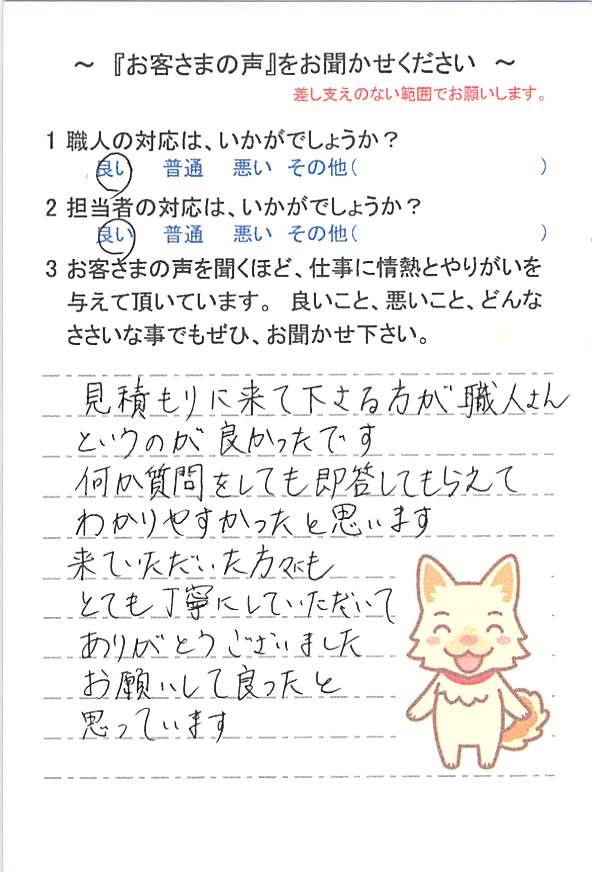 ～ 『お客さまの声』をお聞かせください ～
差し支えのない範囲でお願いします。
1 職人の対応は、いかがでしょうか？
良い 普通 悪い その他( )
2 担当者の対応は、いかがでしょうか？
良い 普通 悪い その他( )
3 お客さまの声を聞くほど、仕事に情熱とやりがいを
与えて頂いています。 良いこと、悪いこと、どんな
ささいな事でもぜひ、お聞かせ下さい。
見積もりに来て下さる方が職人さん
というのが良かったです
何か質問をしても即答してもらえて
わかりやすかったと思います
来ていただいた方々にも
とても丁寧にしていただいて
ありがとうございました
お願いして良ったと
思っています